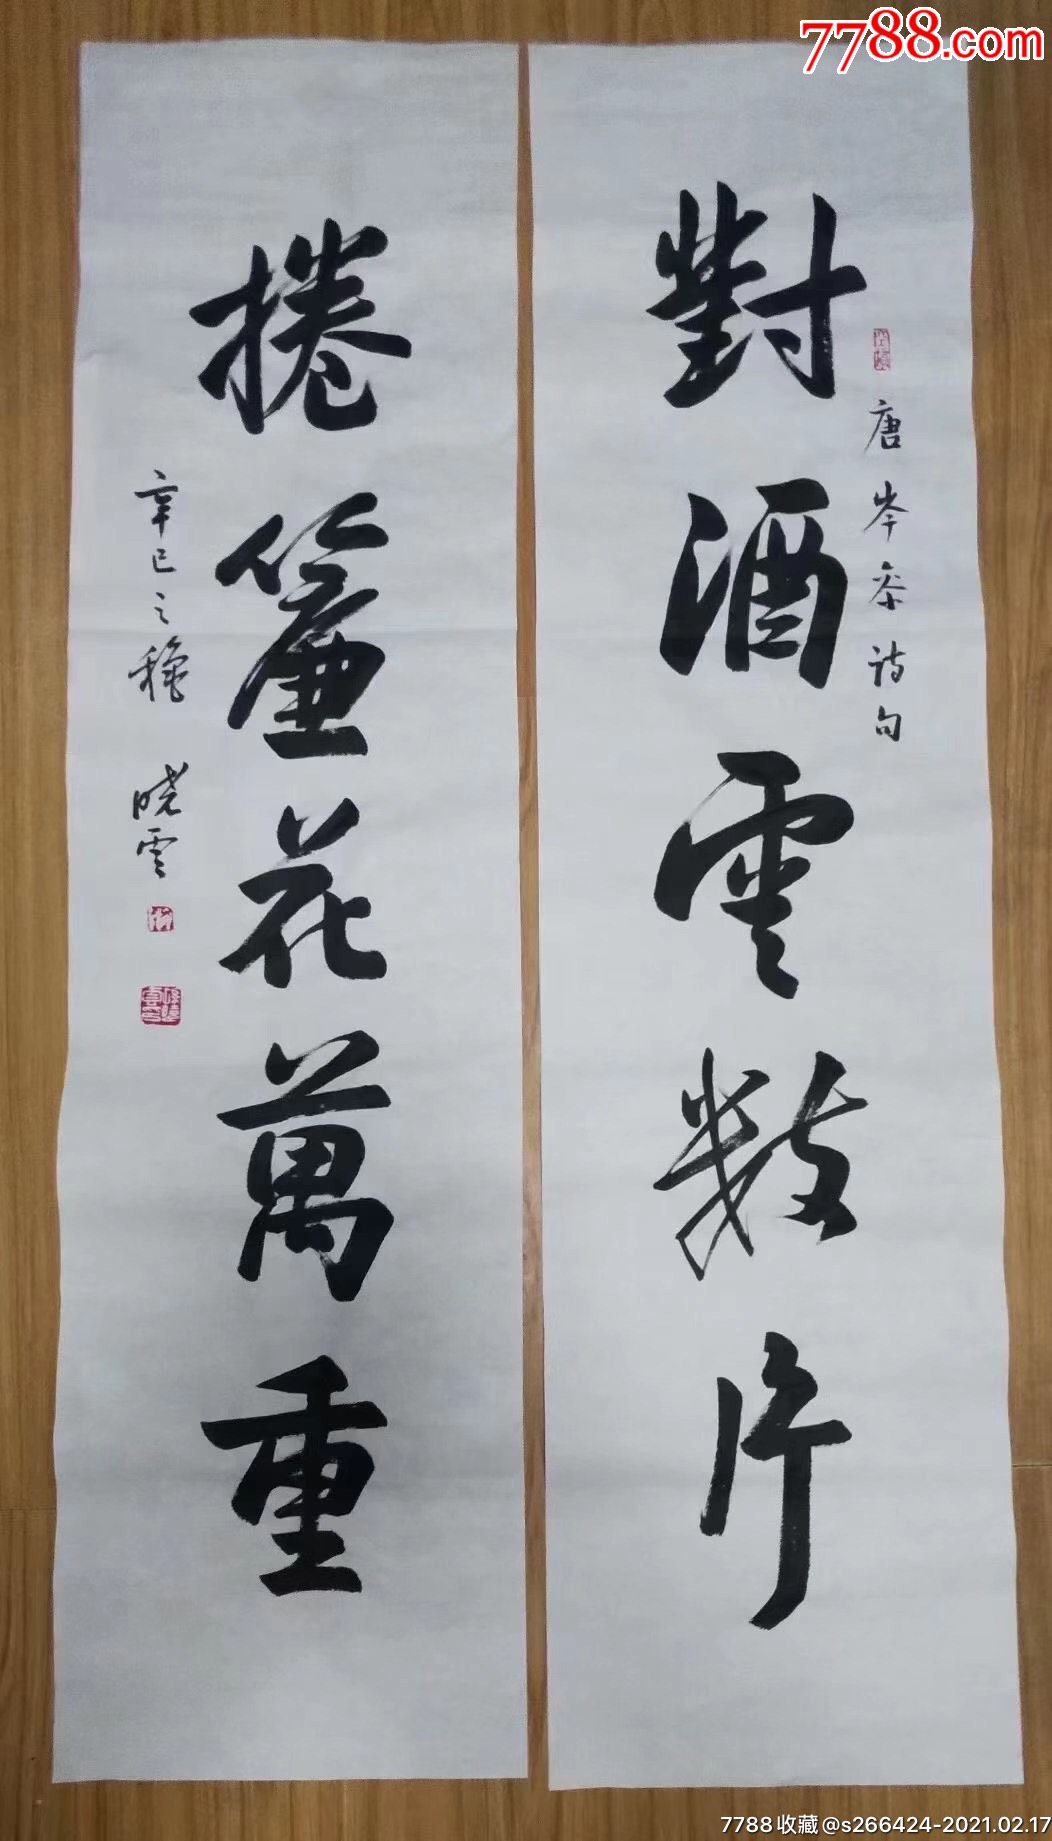 7788.com
對酒雲數片
唐岑参诗句
捲簾花萬重
辛巳之穐 晓雲
7788收藏@s266424-2021.02.17